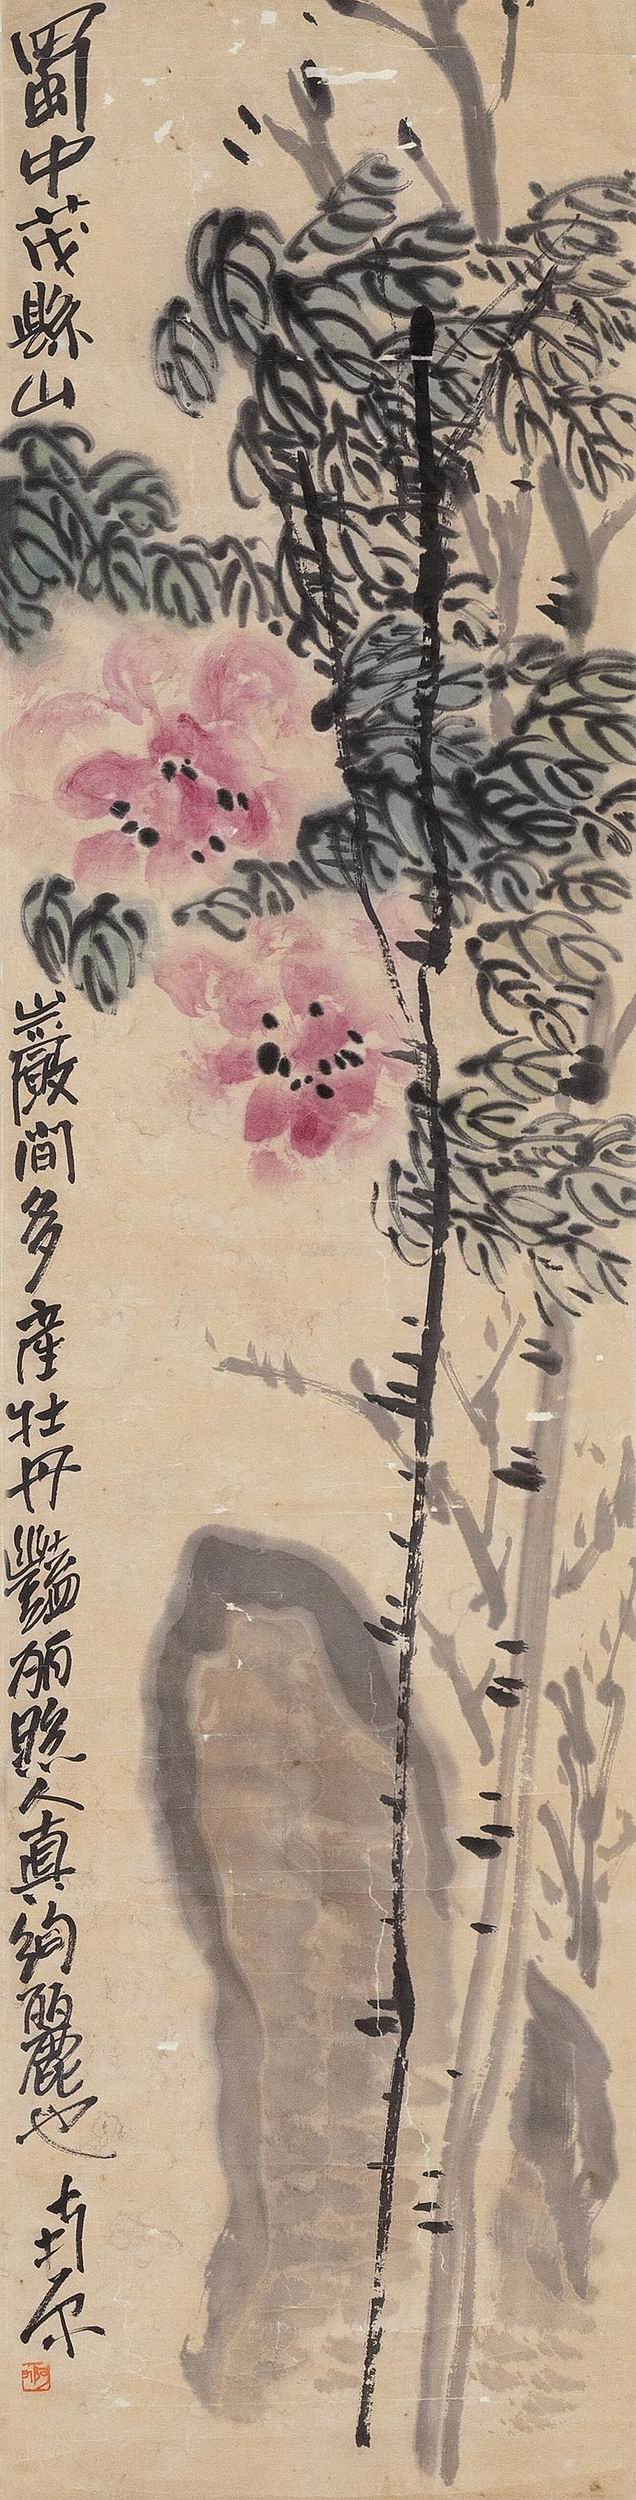 蜀中茂縣山
巖間多產牡丹豔丽照人真絢麗也
南原